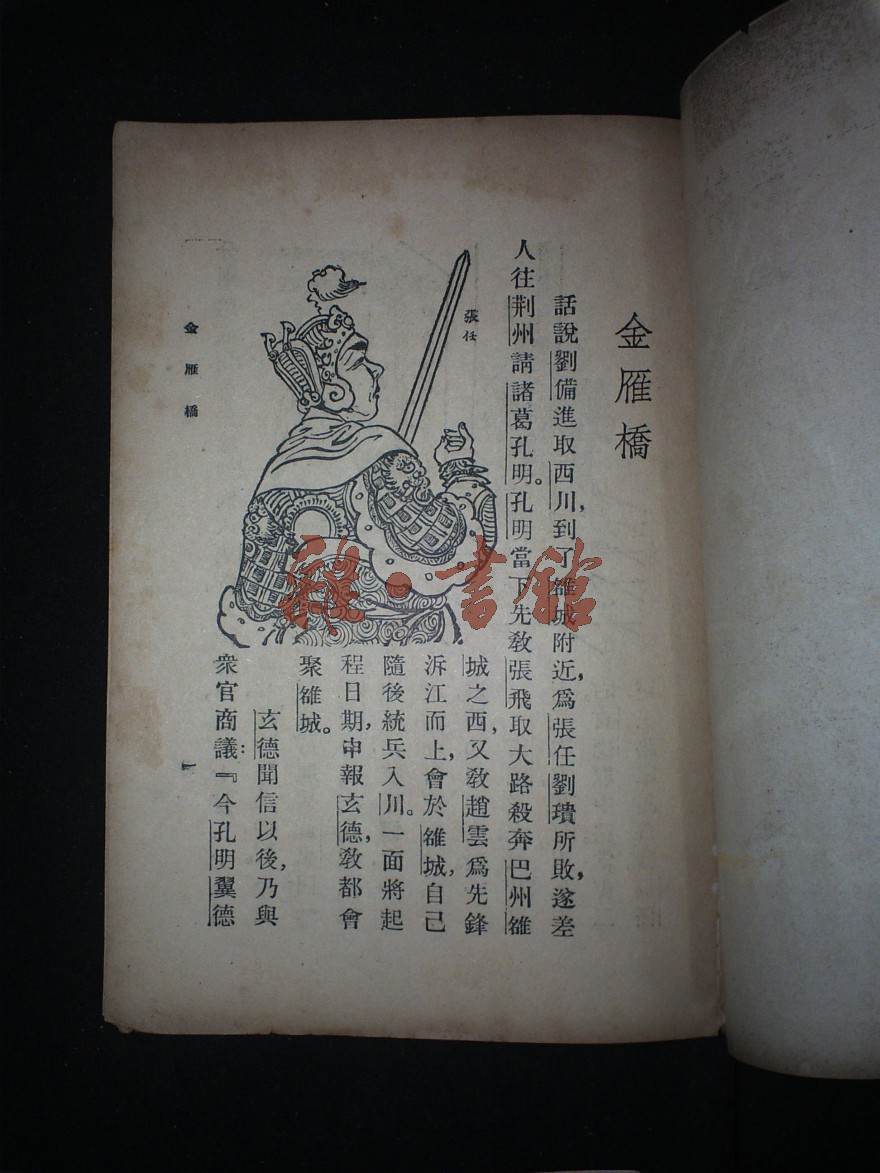 金雁橋
話說劉備進取西川,到了雒城附近,爲張任劉璝所敗,遂差
人往荆州請諸葛孔明。孔明當下先教張飛取大路殺奔巴州雒
城之西,又教趙雲爲先鋒
泝江而上,會於雒城,自己
隨後統兵入川。一面將起
程日期,申報玄德,教都會
聚雒城。
玄德聞信以後,乃與
衆官商議:『今孔明翼德
張任
金雁橋
一
雜·書館